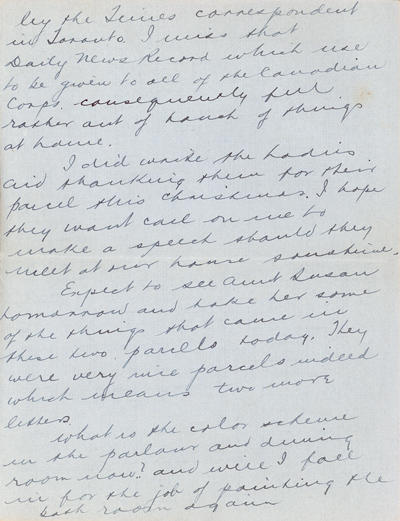 by the Times correspondent
in Toronto. I miss that
Daily News Record which use
to be given to all of the Canadian
Corps. consequently feel
rather out of touch of things
at home.
I did write the Ladies
aid thanking them for their
parcel this Christmas. I hope
they wont call on me to
make a speech should they
meet at our house sometime.
Expect to see Aunt Susan
tomorrow and take her some
of the things that came in
these two parcels today. They
were very nice parcels indeed
which means two more
letters
what is the color scheme
in the parlour and dinning
room now? and will I fall
in for the job of painting the
bath room again